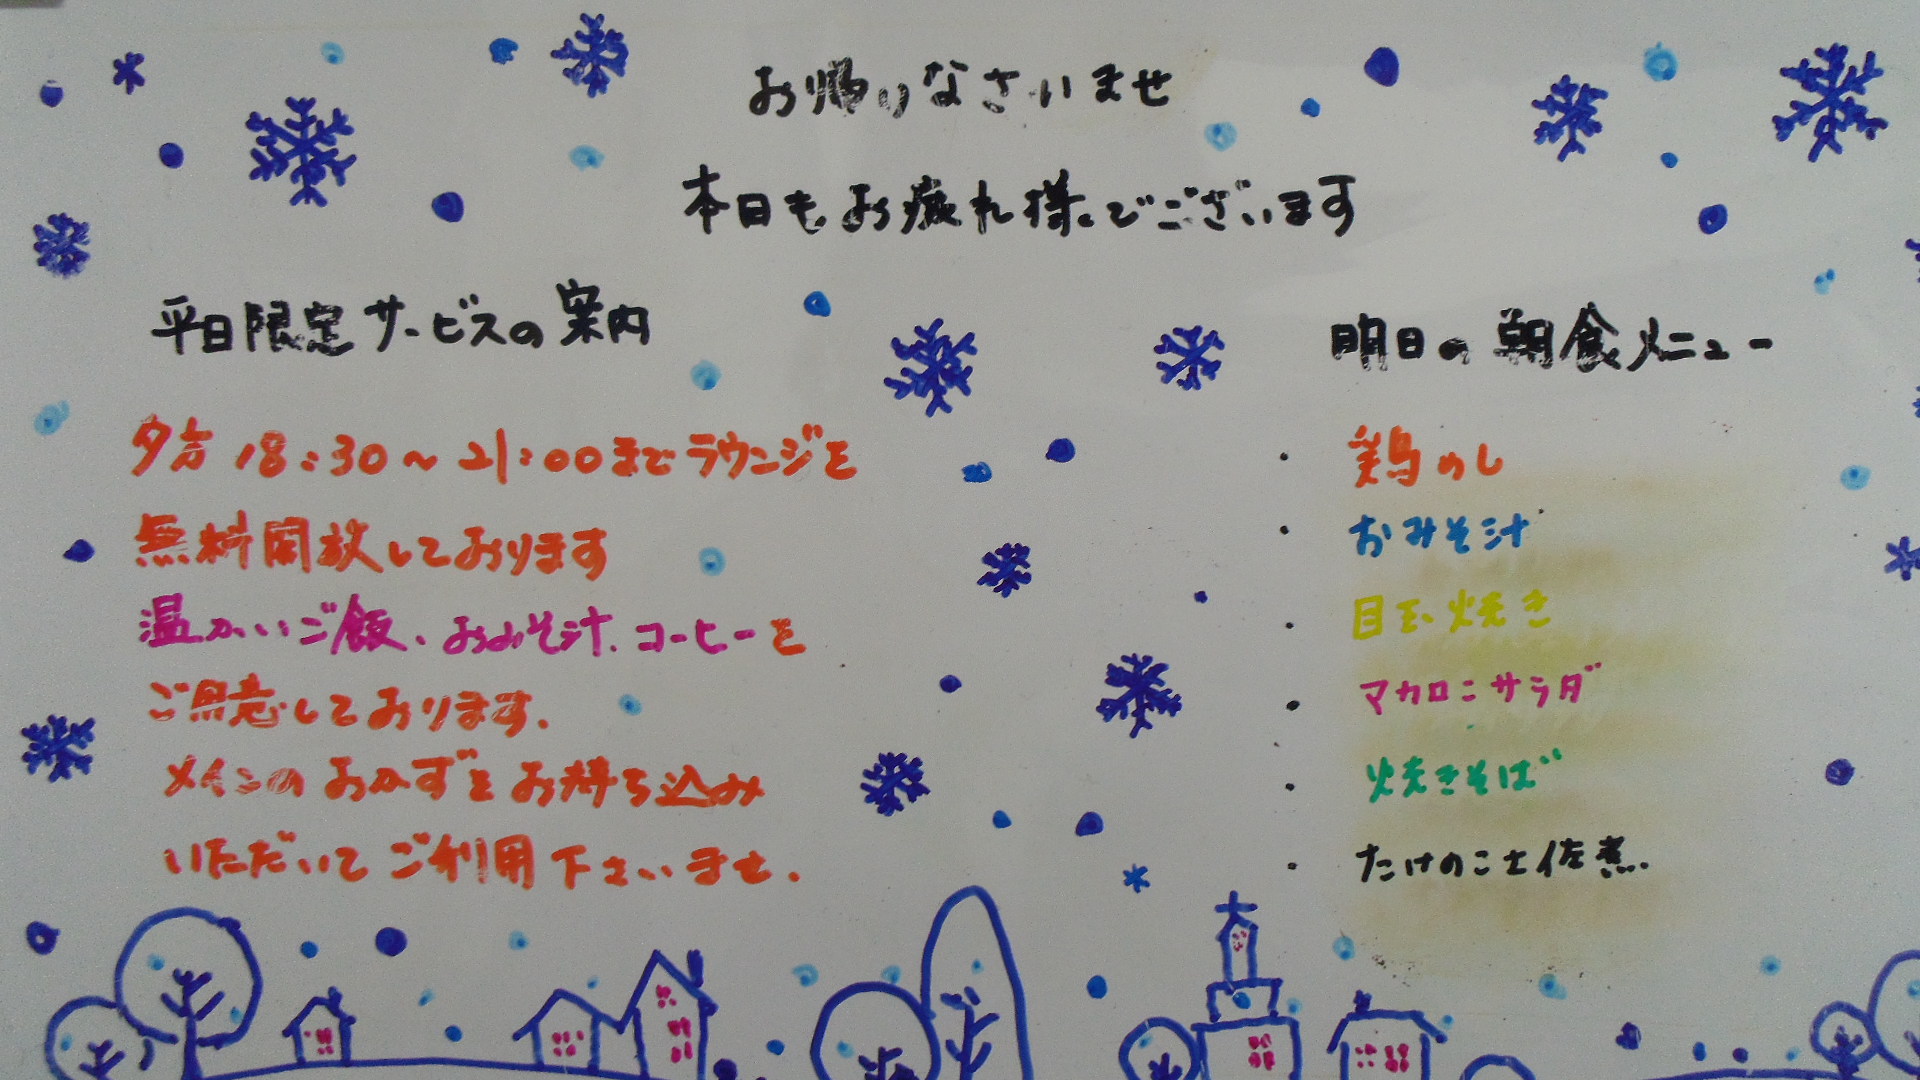 お帰りなさいませ
本日もお疲れ様でございます
平日限定サービスの案内
夕方18:30～21:00までラウンジを
無料開放しております
温かいご飯、おみそ汁、コーヒーを
ご用意しております。
メインのおかずをお持ち込み
いただいてご利用下さいませ。
明日の朝食メニュー
・鶏めし
・おみそ汁
・目玉焼き
・マカロニサラダ
・焼きそば
・たけのこ土佐煮.